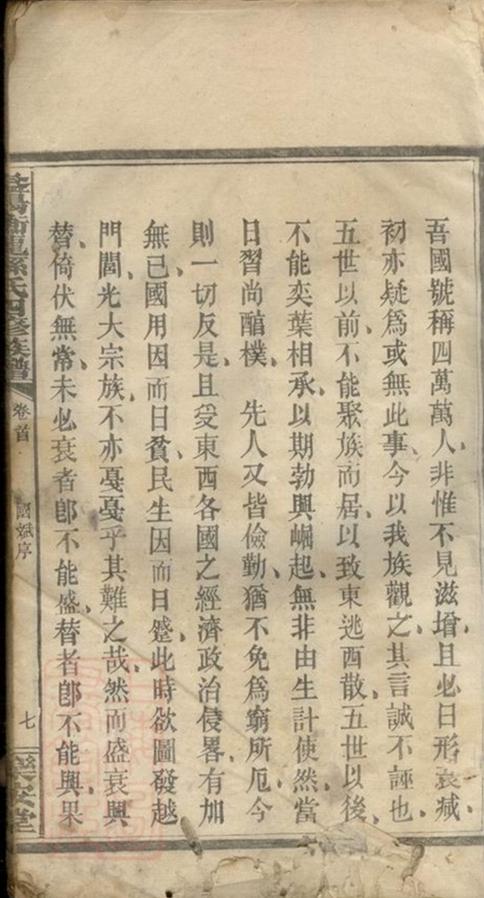 吾國號稱四萬萬人、非惟不見滋增、且必日形衰減、
初亦疑為或無此事、今以我族觀之、其言誠不誣也、
五世以前、不能聚族而居、以致東逃西散、五世以後、
不能奕葉相承、以期勃興崛起、無非由生計使然、當
日習尚醕樸、先人又皆儉勤、猶不免為窮所厄、今
則一切反是、且受東西各國之經濟政治侵畧、有加
無已、國用因而日貧、民生因而日蹙、此時欲圖發越
門閭、光大宗族、不亦戞戞乎其難之哉、然而盛衰興
替、倚伏無常、未必衰者卽不能盛、替者卽不能興、果
孫氏四修族譜
卷首
序
七
樂安堂